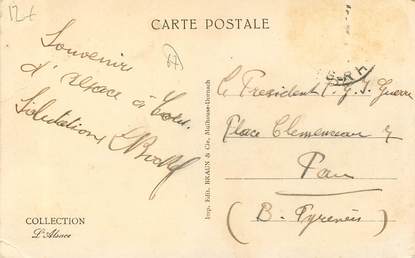 12f
CARTE POSTALE
Souvenirs
d'alsace à tous.
Salutations
Imp. Edit. BRAUN & Cie, Mulhouse-Dornach
COLLECTION
L'Alsace
Le President
Guerre
Place Clemenceau 7
Pau
(B. Pyrenées)